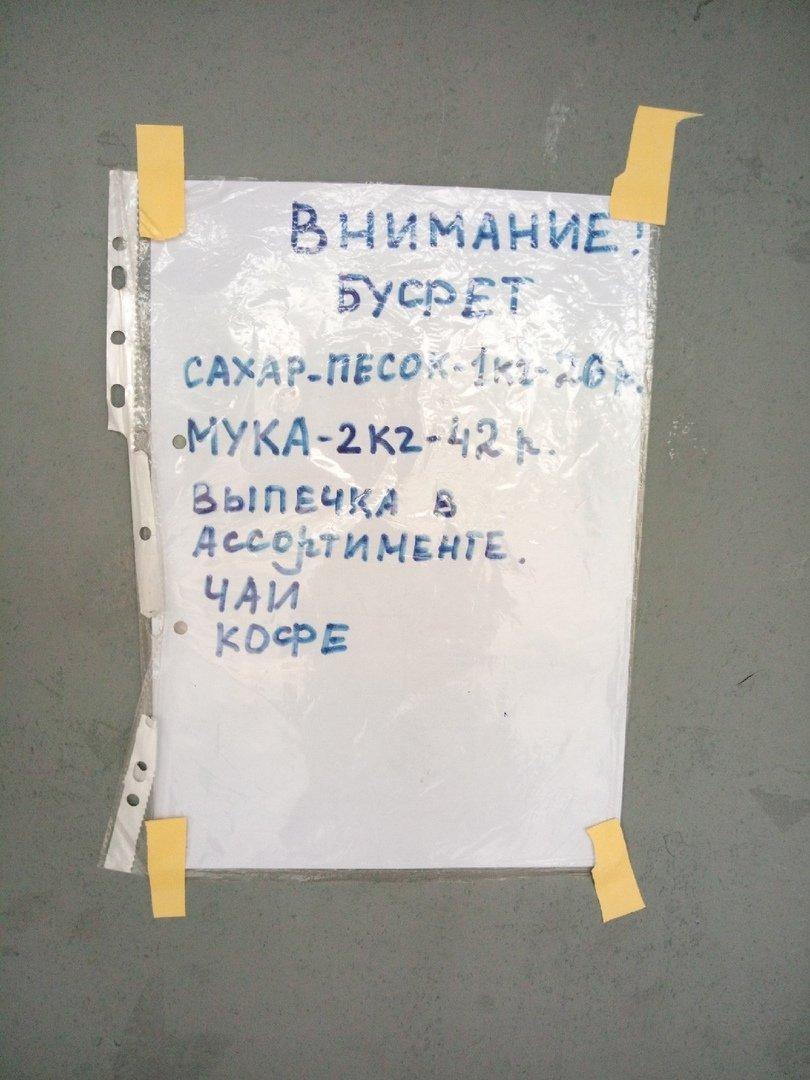 ВНИМАНИЕ!
БУФРЕТ
САХАР-ПЕСОК-1кг-26 р.
МУКА-2кг-42 р.
ВЫПЕЧКА В
АССОРТИМЕНТЕ.
ЧАИ
КОФЕ